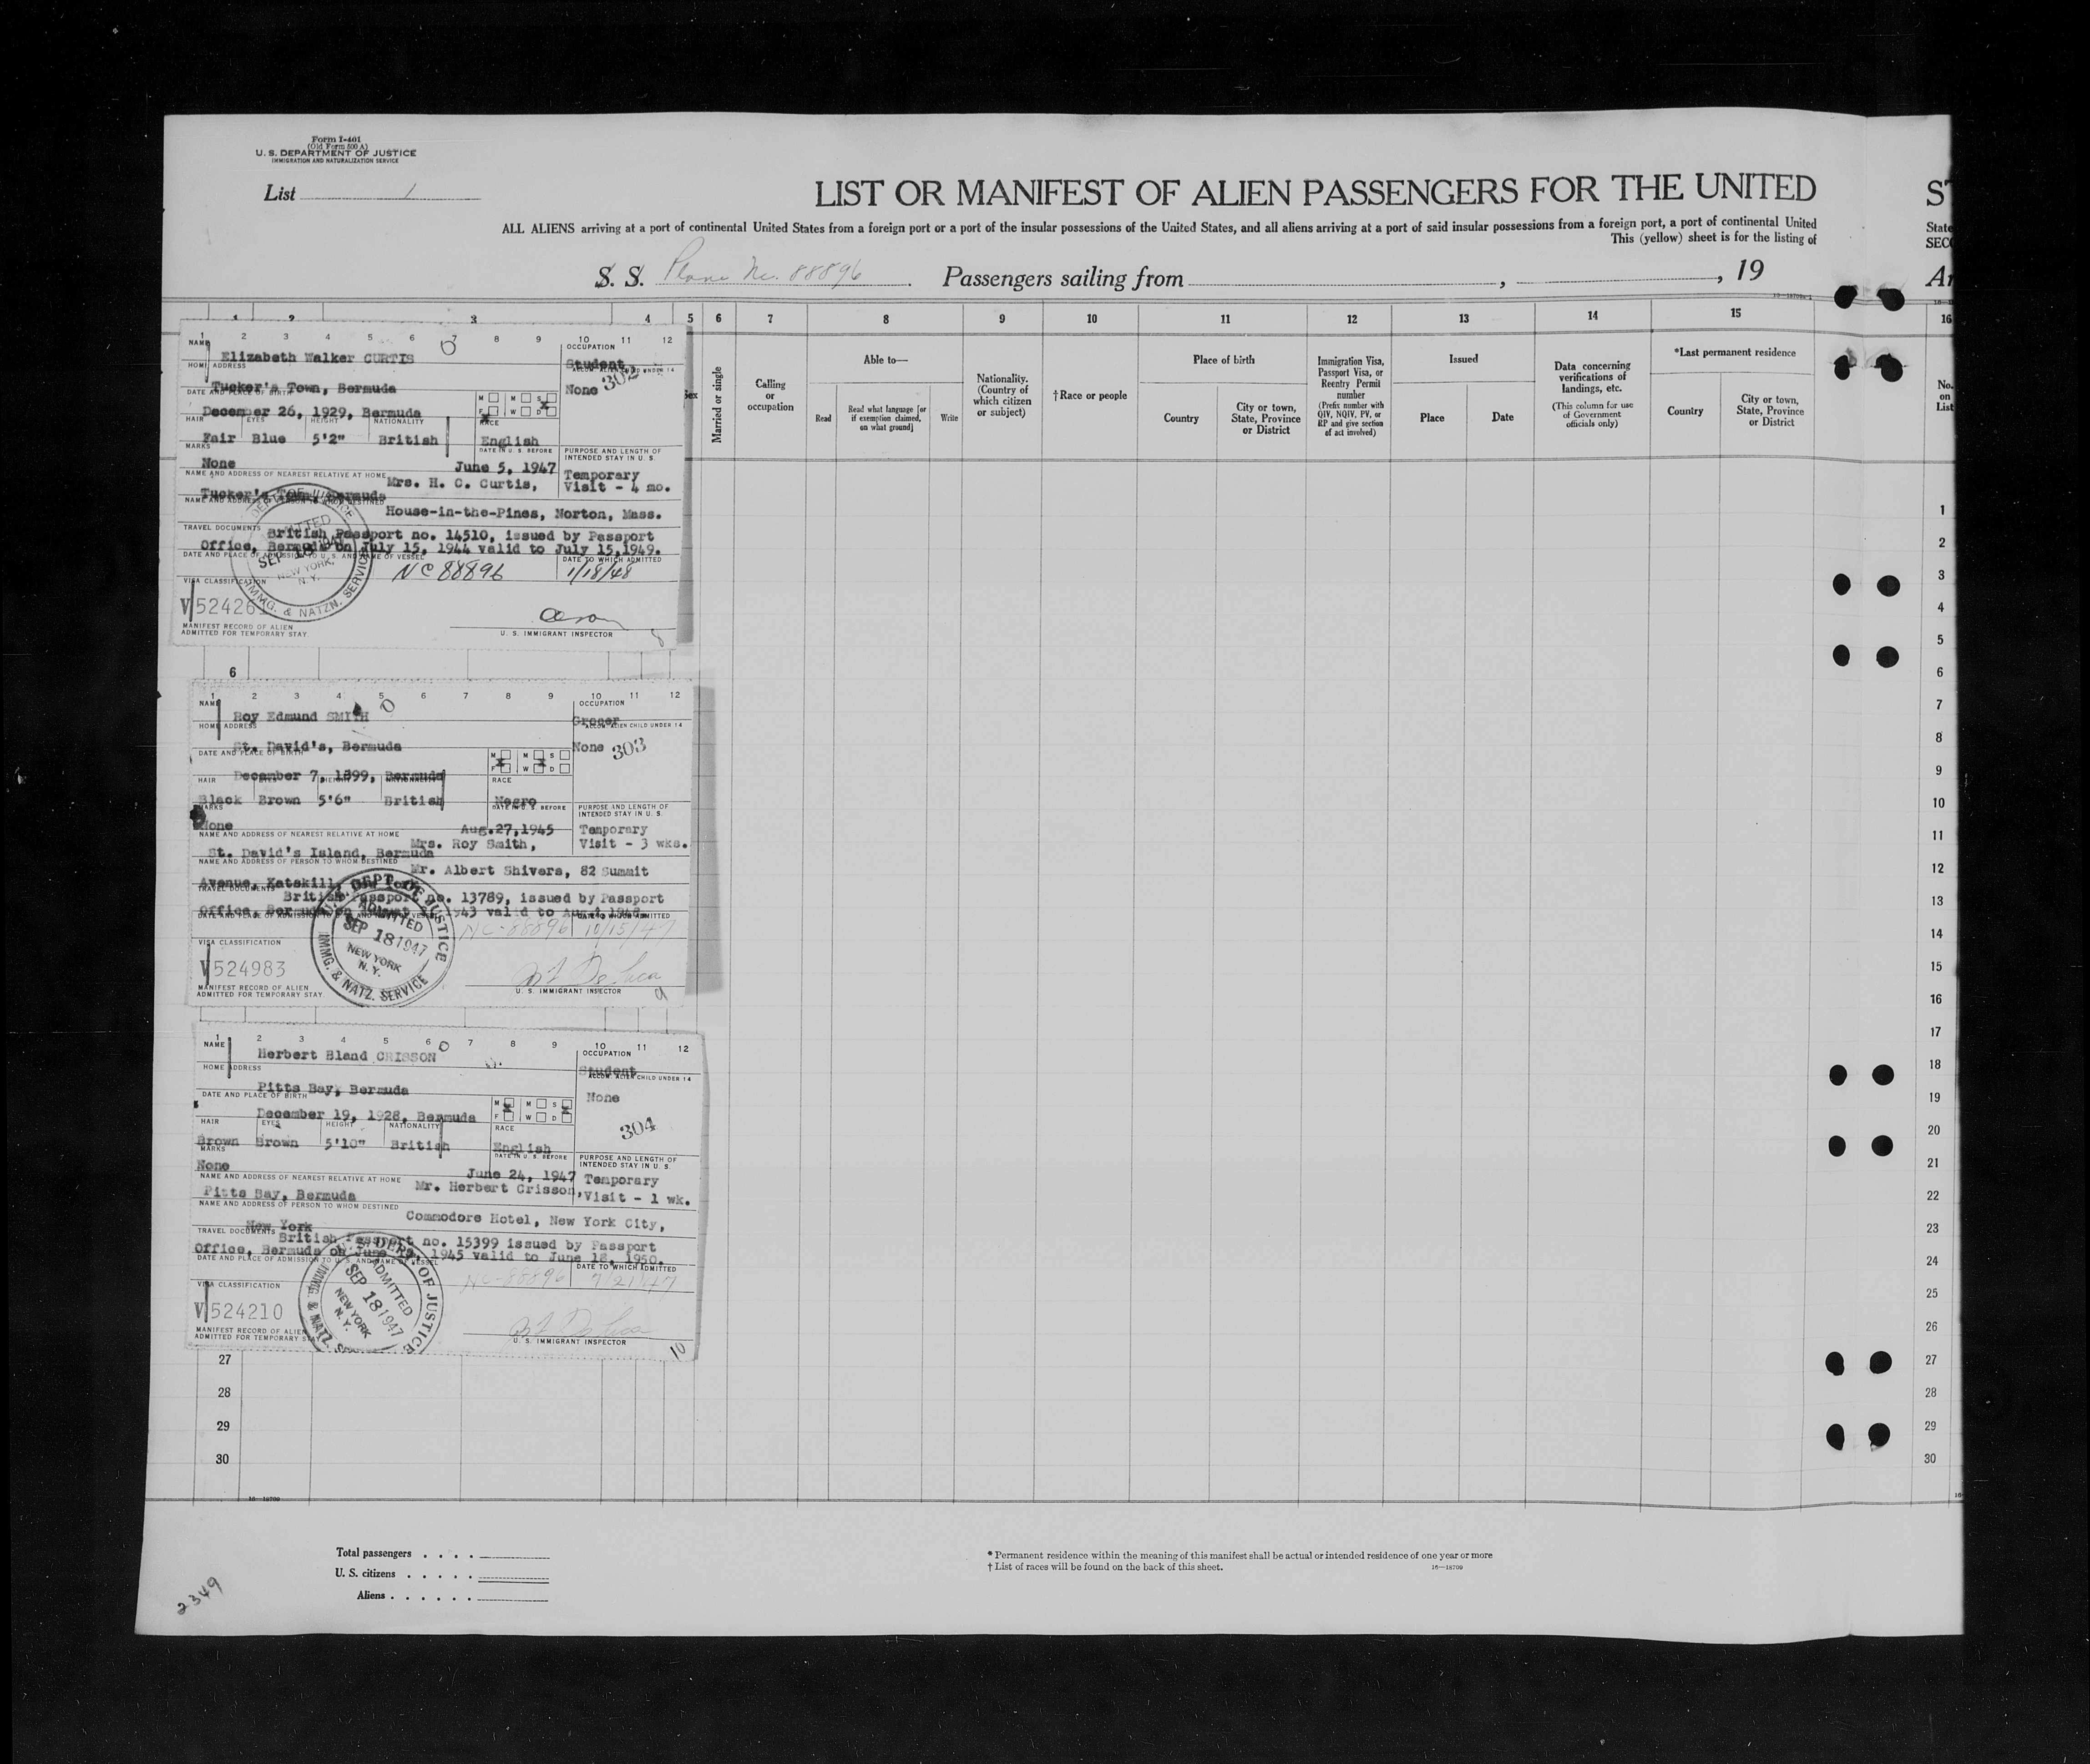 Form I-401
(Old Form 500 A)
U. S. DEPARTMENT OF JUSTICE
IMMIGRATION AND NATURALIZATION SERVICE
List 1
LIST OR MANIFEST OF ALIEN PASSENGERS FOR THE UNITED
ST
ALL ALIENS arriving at a port of continental United States from a foreign port or a port of the insular possessions of the United States, and all aliens arriving at a port of said insular possessions from a foreign port, a port of continental United
State
This (yellow) sheet is for the listing of
SECO
S. S. Plane No. 88896. Passengers sailing from , , 19
Ar
1 2 3 4 5 6 7 8 9 10 11 12 13 14 15 16
Sex
Married or single
Calling or occupation
Able to—
Read
Read what language [or if exemption claimed, on what ground]
Write
Nationality. (Country of which citizen or subject)
†Race or people
Place of birth
Country
City or town, State, Province or District
Immigration Visa, Passport Visa, or Reentry Permit number
(Prefix number with QIV, NQIV, PV, or RP and give section of act involved)
Issued
Place
Date
Data concerning verifications of landings, etc.
(This column for use of Government officials only)
*Last permanent residence
Country
City or town, State, Province or District
No. on List
1 2 3 4 5 6 7 8 9 10 11 12
NAME
Elizabeth Walker CURTIS
OCCUPATION
Student
HOME ADDRESS
Tucker's Town, Bermuda
ACCOM. ALIEN CHILD UNDER 14
None 302
DATE AND PLACE OF BIRTH
December 26, 1929, Bermuda
M M S
F W D
HAIR EYES HEIGHT NATIONALITY RACE
Fair Blue 5'2" British English
MARKS
None
DATE IN U. S. BEFORE
June 5, 1947
PURPOSE AND LENGTH OF INTENDED STAY IN U. S.
Temporary
Visit - 4 mo.
NAME AND ADDRESS OF NEAREST RELATIVE AT HOME
Mrs. H. C. Curtis,
Tucker's Town, Bermuda
NAME AND ADDRESS OF PERSON TO WHOM DESTINED
House-in-the-Pines, Norton, Mass.
TRAVEL DOCUMENTS
British Passport no. 14510, issued by Passport
Office, Bermuda on July 15, 1944 valid to July 15,1949.
DATE AND PLACE OF ADMISSION TO U. S. AND NAME OF VESSEL
DATE TO WHICH ADMITTED
NC 88896 1/18/48
NEW YORK, N. Y.
IMMG. & NATZN. SERVICE
VISA CLASSIFICATION
V 52426
MANIFEST RECORD OF ALIEN
ADMITTED FOR TEMPORARY STAY.
U. S. IMMIGRANT INSPECTOR
8
6
1 2 3 4 5 6 7 8 9 10 11 12
NAME
Roy Edmund SMITH
OCCUPATION
Grocer
HOME ADDRESS
St. David's, Bermuda
ACCOM. ALIEN CHILD UNDER 14
None 303
DATE AND PLACE OF BIRTH
December 7, 1899, Bermuda
M M S
F W D
HAIR EYES HEIGHT NATIONALITY RACE
Black Brown 5'6" British Negro
MARKS
None
DATE IN U. S. BEFORE
Aug.27,1945
PURPOSE AND LENGTH OF INTENDED STAY IN U. S.
Temporary
Visit - 3 wks.
NAME AND ADDRESS OF NEAREST RELATIVE AT HOME
Mrs. Roy Smith,
St. David's Island, Bermuda
NAME AND ADDRESS OF PERSON TO WHOM DESTINED
Mr. Albert Shivers, 82 Summit
Avenue, Katskill, New York
TRAVEL DOCUMENTS
British Passport no. 13789, issued by Passport
Office, Bermuda on 1943 valid to
DATE AND PLACE OF ADMISSION TO U. S. AND NAME OF VESSEL
DATE TO WHICH ADMITTED
NC-88896 10/15/47
DEPT. OF JUSTICE
ADMITTED
SEP 18 1947
NEW YORK
N. Y.
IMMG. & NATZ. SERVICE
VISA CLASSIFICATION
V 524983
MANIFEST RECORD OF ALIEN
ADMITTED FOR TEMPORARY STAY.
U. S. IMMIGRANT INSPECTOR
9
1 2 3 4 5 6 7 8 9 10 11 12
NAME
Herbert Bland CRISSON
OCCUPATION
Student
HOME ADDRESS
Pitts Bay, Bermuda
ACCOM. ALIEN CHILD UNDER 14
None
304
DATE AND PLACE OF BIRTH
December 19, 1928, Bermuda
M M S
F W D
HAIR EYES HEIGHT NATIONALITY RACE
Brown Brown 5'10" British English
MARKS
None
DATE IN U. S. BEFORE
June 24, 1947
PURPOSE AND LENGTH OF INTENDED STAY IN U. S.
Temporary
Visit - 1 wk.
NAME AND ADDRESS OF NEAREST RELATIVE AT HOME
Mr. Herbert Crisson,
Pitts Bay, Bermuda
NAME AND ADDRESS OF PERSON TO WHOM DESTINED
Commodore Hotel, New York City,
New York
TRAVEL DOCUMENTS
British Passport no. 15399 issued by Passport
Office, Bermuda on June 1945 valid to June 18, 1950.
DATE AND PLACE OF ADMISSION TO U. S. AND NAME OF VESSEL
DATE TO WHICH ADMITTED
NC-88896 9/21/47
DEPT. OF JUSTICE
ADMITTED
SEP 18 1947
NEW YORK
N. Y.
IMMG. & NATZ.
VISA CLASSIFICATION
V 524210
MANIFEST RECORD OF ALIEN
ADMITTED FOR TEMPORARY STAY
U. S. IMMIGRANT INSPECTOR
10
27
28
29
30
1
2
3
4
5
6
7
8
9
10
11
12
13
14
15
16
17
18
19
20
21
22
23
24
25
26
27
28
29
30
16—18709
Total passengers . . . .
U. S. citizens . . . . .
Aliens . . . . . .
* Permanent residence within the meaning of this manifest shall be actual or intended residence of one year or more
† List of races will be found on the back of this sheet.
16—18709
2349